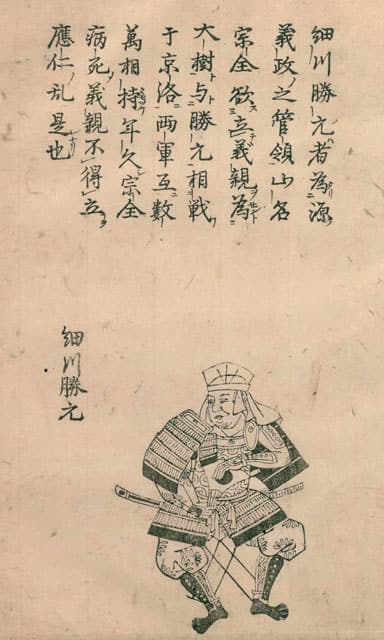 細川勝元者為源
義政之管領山名
宗全欲立義親為
大樹与勝元相戦
于京洛両軍互数
萬相持年久宗全
病死義親不得立
應仁乱是也
細川勝元